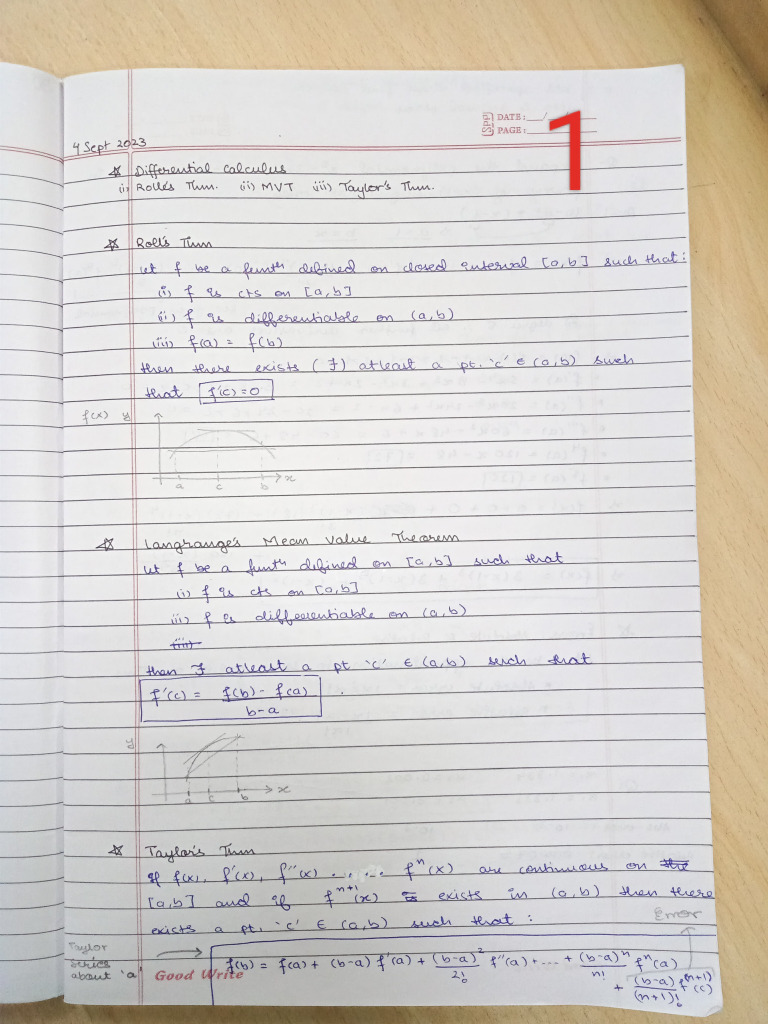 1
Spp DATE: __/__/__
PAGE: ______
4 Sept 2023
☆ Differential calculus
(i) Rolle's Thm. (ii) MVT (iii) Taylor's Thm.
☆ Roll's Thm
Let f be a funth defined on closed interval [a,b] such that:
(i) f is cts on [a,b]
(ii) f is differentiable on (a,b)
(iii) f(a) = f(b)
then there exists (∃) atleast a pt. 'c' ∈ (a,b) such
that f'(c) = 0
f(x) y
a c b x
☆ Langrange's Mean Value Theorem
Let f be a funth defined on [a,b] such that
(i) f is cts on [a,b]
(ii) f is differentiable on (a,b)
(iii)
then ∃ atleast a pt 'c' ∈ (a,b) such that
f'(c) = f(b) - f(a) / b-a .
y
a c b x
☆ Taylor's Thm
If f(x), f'(x), f''(x) ..... fⁿ(x) are continuous on the
[a,b] and if fⁿ⁺¹(x) exists in (a,b) then there
exists a pt. 'c' ∈ (a,b) such that :
Error
Taylor series about 'a' →
f(b) = f(a) + (b-a) f'(a) + (b-a)²/2! f''(a) + ... + (b-a)ⁿ/n! fⁿ(a)
+ (b-a)/(n+1)! f⁽ⁿ⁺¹⁾(c)
Good Write